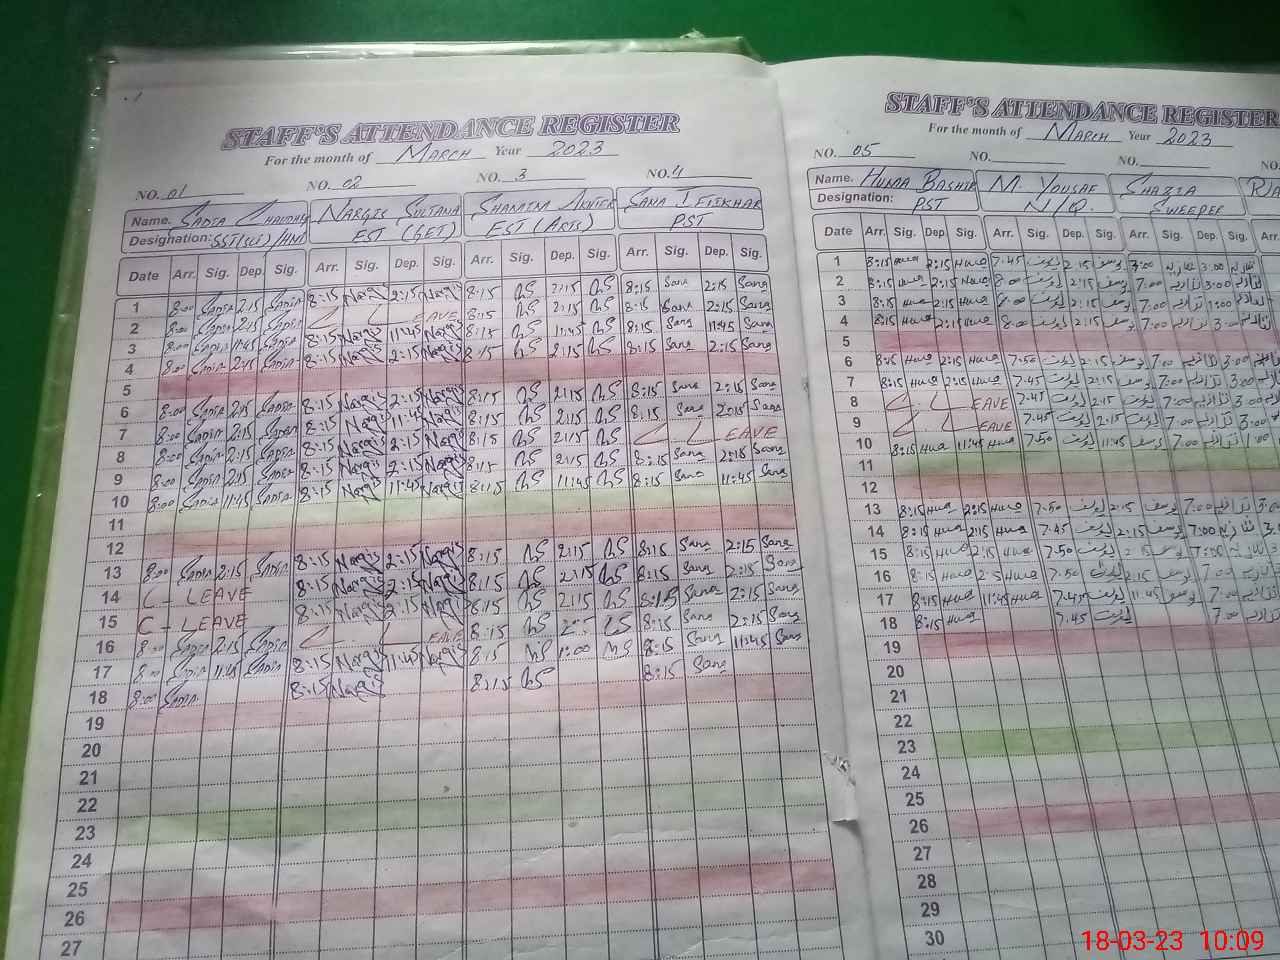 STAFF'S ATTENDANCE REGISTER
For the month of MARCH Year 2023
NO. 01 NO. 02 NO. 3 NO. 4
Name. SADIA NARGIS SULTANA SHAMIM AKHTER SANA IFTIKHAR
Designation: EST (GET) EST (ARTS) PST
Date Arr. Sig. Dep. Sig. Arr. Sig. Dep. Sig. Arr. Sig. Dep. Sig. Arr. Sig. Dep. Sig.
1 8:00 Sadia 2:15 Sadia 8:15 Nargis 2:15 Nargis 8:15 2:15 8:15 Sana 2:15 Sana
2 8:00 Sadia 2:15 Sadia C. LEAVE 8:15 2:15 8:15 Sana 2:15 Sana
3 8:00 Sadia 11:45 Sadia 8:15 Nargis 11:45 Nargis 8:15 11:45 8:15 Sana 11:45 Sana
4 8:00 Sadia 2:15 Sadia 8:15 Nargis 2:15 Nargis 2:15 8:15 Sana 2:15 Sana
5
6 8:00 Sadia 2:15 Sadia 8:15 Nargis 2:15 Nargis 8:15 2:15 8:15 Sana 2:15 Sana
7 8:00 Sadia 2:15 Sadia 8:15 Nargis Nargis 8:15 2:15 8:15 Sana 2:15 Sana
8 8:00 Sadia 2:15 Sadia 8:15 Nargis 2:15 Nargis 8:15 2:15 C. LEAVE
9 8:00 Sadia 2:15 Sadia 8:15 Nargis 2:15 Nargis 8:15 2:15 8:15 Sana 2:15 Sana
10 8:00 Sadia 11:45 Sadia 8:15 Nargis 11:45 Nargis 8:15 11:45 8:15 Sana 11:45 Sana
11
12
13 8:00 Sadia 2:15 Sadia 8:15 Nargis 2:15 Nargis 8:15 2:15 8:15 Sana 2:15 Sana
14 C - LEAVE 8:15 Nargis 2:15 Nargis 8:15 2:15 8:15 Sana 2:15 Sana
15 C - LEAVE 8:15 Nargis 2:15 Nargis 8:15 2:15 8:15 Sana 2:15 Sana
16 Sadia 2:15 Sadia C. LEAVE 8:15 8:15 Sana 2:15 Sana
17 Sadia 11:45 Sadia 8:15 Nargis 11:45 Nargis 8:15 1:00 8:15 Sana 11:45 Sana
18 8:00 Sadia 8:15 Nargis 8:15 8:15 Sana
19
20
21
22
23
24
25
26
27
STAFF'S ATTENDANCE REGISTER
For the month of MARCH Year 2023
NO. 05 NO. NO. NO.
Name. HUMA BASHIR M. YOUSAF SHAZIA
Designation: PST N/Q. SWEEPER
Date Arr. Sig. Dep. Sig. Arr. Sig. Dep. Sig. Arr. Sig. Dep. Sig. Arr.
1 8:15 Huma 2:15 Huma 7:45 یوسف 2:15 یوسف 7:00 شازیہ 3:00 شازیہ
2 8:15 Huma 2:15 Huma 8:00 یوسف 2:15 یوسف 7:00 شازیہ 3:00 شازیہ
3 8:15 Huma 2:15 Huma 8:00 یوسف 2:15 یوسف 7:00 شازیہ 1:00 شازیہ
4 8:15 Huma 2:15 Huma 8:00 یوسف 2:15 یوسف 7:00 شازیہ 3:00 شازیہ
5
6 8:15 Huma 2:15 Huma 7:50 یوسف 2:15 یوسف 7:00 شازیہ 3:00
7 8:15 Huma 2:15 Huma 7:45 یوسف 2:15 یوسف 7:00 شازیہ 3:00
8 C. LEAVE 7:45 یوسف 2:15 یوسف 7:00 شازیہ 3:00
9 C. LEAVE 7:45 یوسف 2:15 یوسف 7:00 شازیہ 3:00
10 8:15 Huma 11:45 Huma 7:50 یوسف 11:45 یوسف 7:00 شازیہ 1:00
11
12
13 8:15 Huma 2:15 Huma 7:50 یوسف 2:15 یوسف 7:00 شازیہ
14 8:15 Huma 2:15 Huma 7:45 یوسف 2:15 یوسف 7:00 شازیہ
15 8:15 Huma 2:15 Huma 7:50 یوسف 2:15 یوسف 7:00 شازیہ
16 8:15 Huma Huma 7:50 یوسف 2:15 یوسف 7:00 شازیہ
17 8:15 Huma 11:45 Huma 7:45 یوسف 11:45 یوسف 7:00 شازیہ
18 8:15 Huma 7:45 یوسف 7:00 شازیہ
19
20
21
22
23
24
25
26
27
28
29
30
18-03-23 10:09